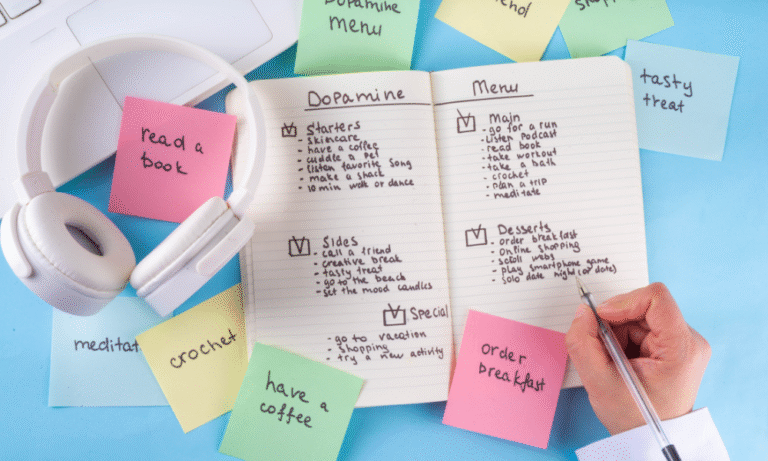 Dopamine
menu
tasty
treat
read a
book
Dopamine Menu
Starters
- skincare
- have a coffee
- cuddle a pet
- listen favorite song
- make a snack
- 10 min walk or dance
Sides
- call a friend
- creative break
- tasty treat
- go to the beach
- set the mood candles
Special
- go to vacation
- shopping
- try a new activity
Main
- go for a run
- Listen Podcast
- read book
- take workout
- take a bath
- crochet
- plan a trip
- meditate
Desserts
- order breakfast
- Online shopping
- scroll webs
- play smartphone game
- solo date night (or date)
meditat
crochet
have a
coffee
order
breakfast